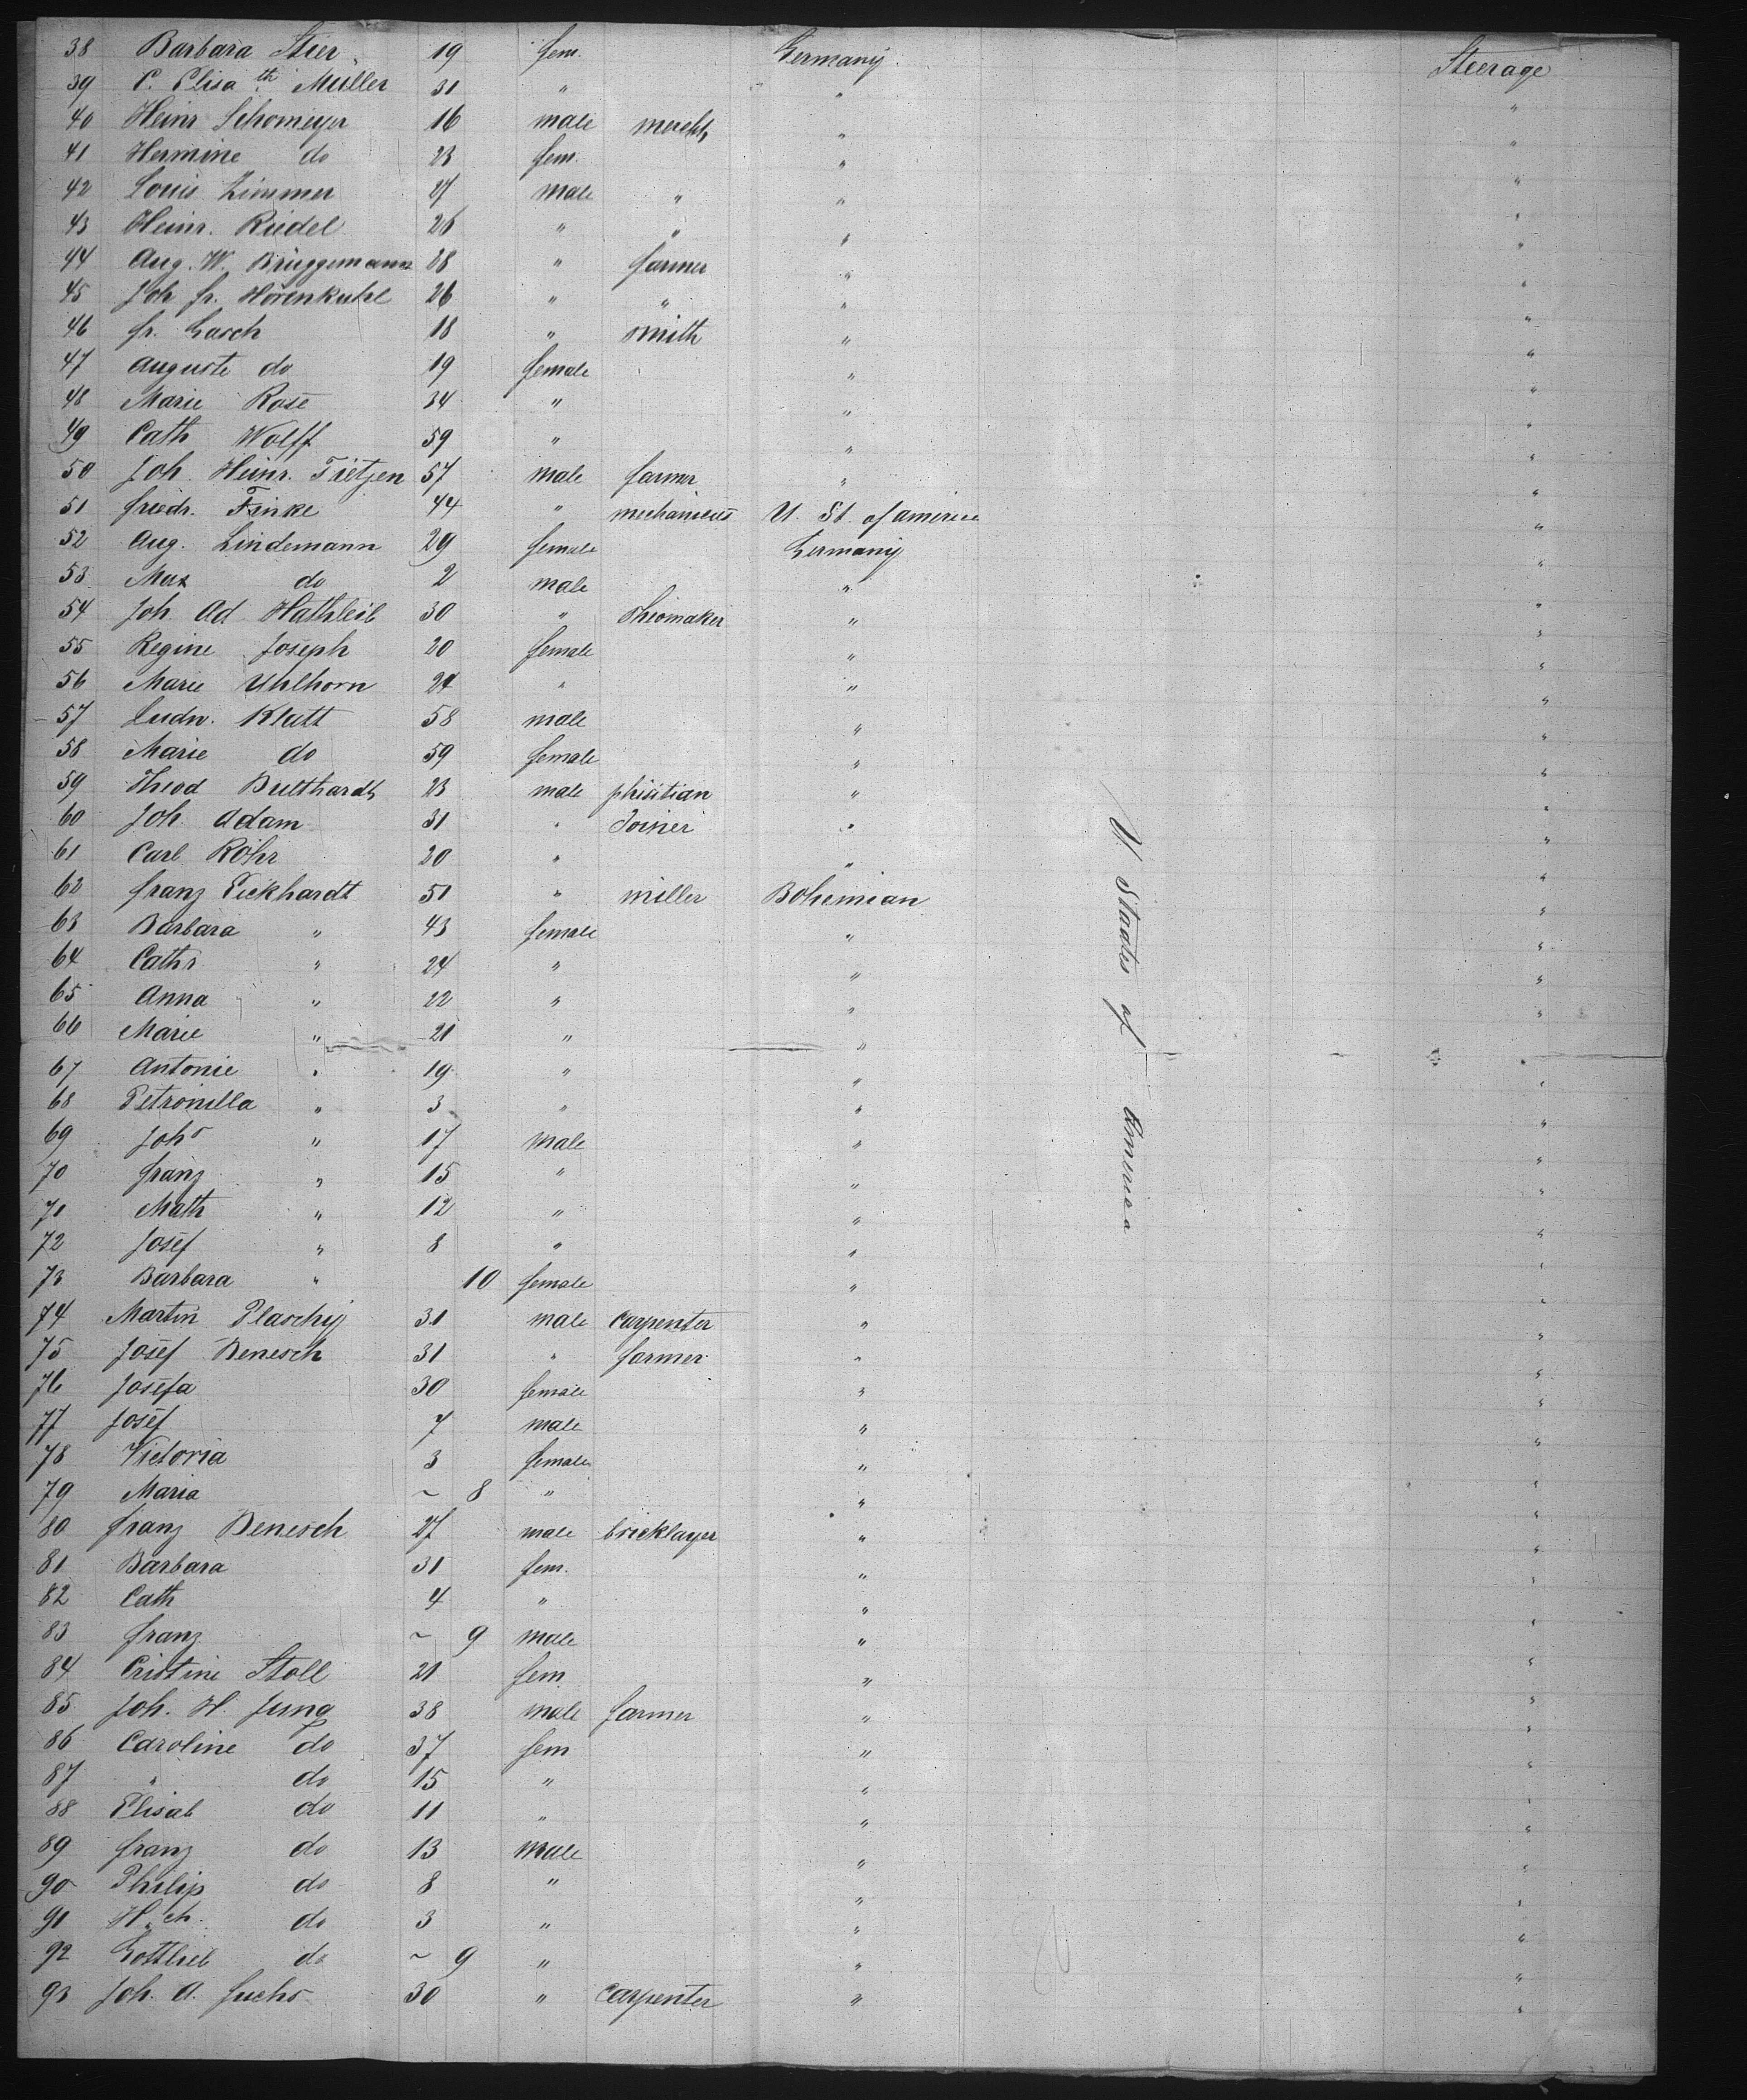 38 Barbara Stier 19 fem. Germany. Steerage
39 C. Elisa th Muller 31 " " "
40 Heinr Schomeyer 16 male mercht " "
41 Hermine do 23 fem. " "
42 Louis Zimmer 27 male " " "
43 Heinr. Riedel 26 " " " "
44 Aug. W. Brüggemann 28 " farmer " "
45 Joh fr. Hörenkuhl 26 " " " "
46 fr. Gasch 18 " smith " "
47 Auguste do 19 female " "
48 Marie Rose 34 " " "
49 Cath Wolff 59 " " "
50 Joh. Heinr. Tietjen 57 male farmer " "
51 friedr. Finke 44 " mechanicus U. St. of america "
52 Aug. Lindemann 29 female Germany "
53 Max do 2 male " "
54 Joh. Ad Hathleib 30 " Sheomaker " "
55 Regine Joseph 20 female " "
56 Marie Uhlhorn 24 " " "
57 Ludw. Klatt 58 male " "
58 Marie do 59 female " "
59 Theod Bultthardt 23 male phisitian " "
60 Joh. Adam 31 " Joiner " "
61 Carl Röhr 20 " " "
62 franz Eickhardt 51 " miller Bohemian "
63 Barbara " 43 female " "
64 Cath " 24 " " "
65 Anna " 22 " " "
66 Marie " 21 " " "
67 Antonie " 19 " " "
68 Petronilla " 3 " " "
69 Joh " 17 male " "
70 franz " 15 " " "
71 Math " 12 " " "
72 Josef " 8 " " "
73 Barbara " 10 female " "
74 Martin Plaschy 31 male carpenter " "
75 Josef Benesch 31 " farmer " "
76 Josefa 30 female " "
77 Josef 7 male " "
78 Victoria 3 female " "
79 Maria ~ 8 " " "
80 franz Benesch 27 male bricklayer " "
81 Barbara 31 fem. " "
82 Cath 4 " " "
83 franz ~ 9 male " "
84 Cristine Stoll 21 fem " "
85 Joh. H. Jung 38 male farmer " "
86 Caroline do 37 fem " "
87 " do 15 " " "
88 Elisab do 11 " " "
89 franz do 13 male " "
90 Philip do 8 " " "
91 H ch. do 3 " " "
92 Gottlieb do ~ 9 " " "
93 Joh. A. fuchs 30 " Carpenter " "
U. Staates of America